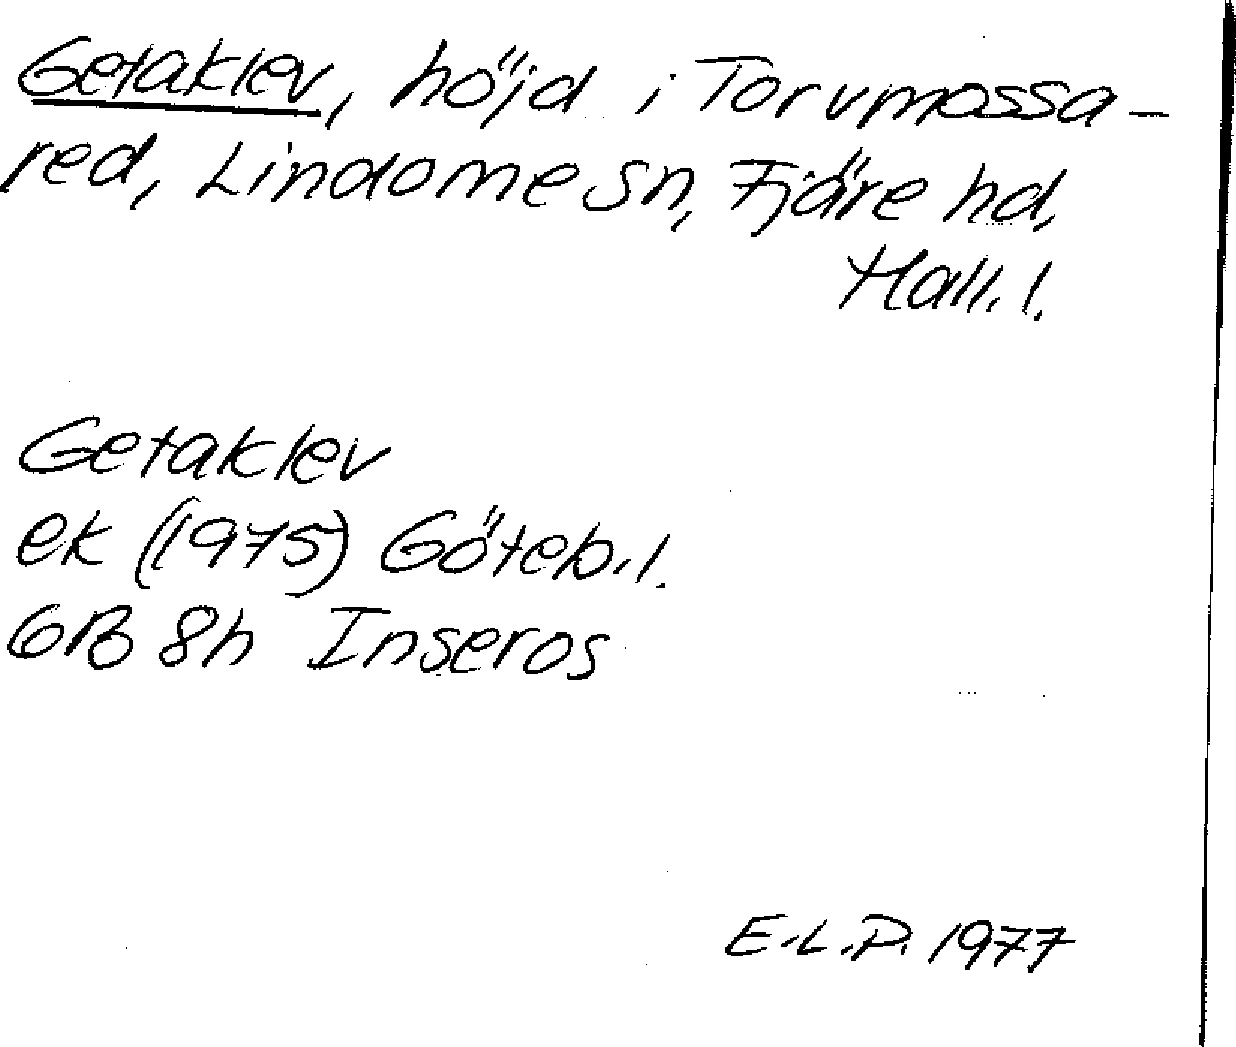 Getaklev, höjd i Torvmossa-
red, Lindome sn, Fjäre hd,
Hall. l.
Getaklev
ek (1975) Göteb. l.
6B 8h Inseros
E.L.P. 1977